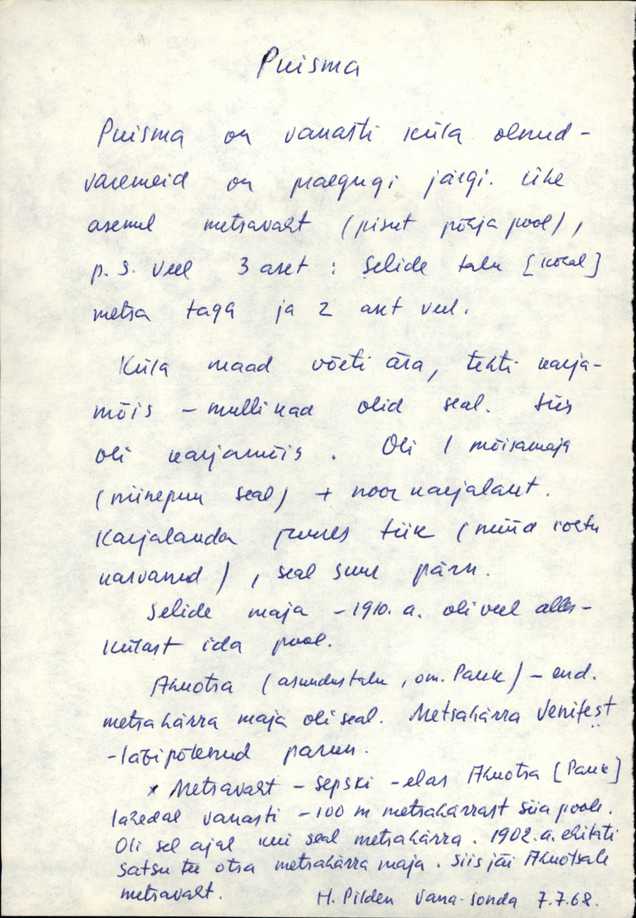 Puisma
Puisma on vanasti küla olnud -
varemeid on praegugi järgi. Ühe
asemel metsavaht (pisut põhja pool),
p. s. veel 3 aset : Selide talu [kocal]
metsa taga ja 2 aset veel.
Küla maad võeti ära, tehti karja-
mõis - mullikad olid seal. Siis
oli karjamõis. Oli 1 mõisamaja
(männepuu seal) + noorkarjalaut.
Karjalauda juures tiik (nüüd rohtu
kasvanud), seal suur pärn.
Selide maja - 1910. a. oli veel alles -
külast ida pool.
Ahuotsa (asundustalu, om. Pauk) - end.
metsahärra maja oli seal. Metsahärra Venifest
- läbipõlenud parun.
* Metsavaht - Sepski - elas Ahuotsa [Pauk]
lähedal vanasti - 100 m metsahärrast siia poole.
Oli sel ajal kui seal metsahärra. 1902. a. ehitati
Satsu tee otsa metsahärra maja. Siis jäi Ahuotsale
metsavaht. H. Pilden Vana-Sonda 7.7.68.